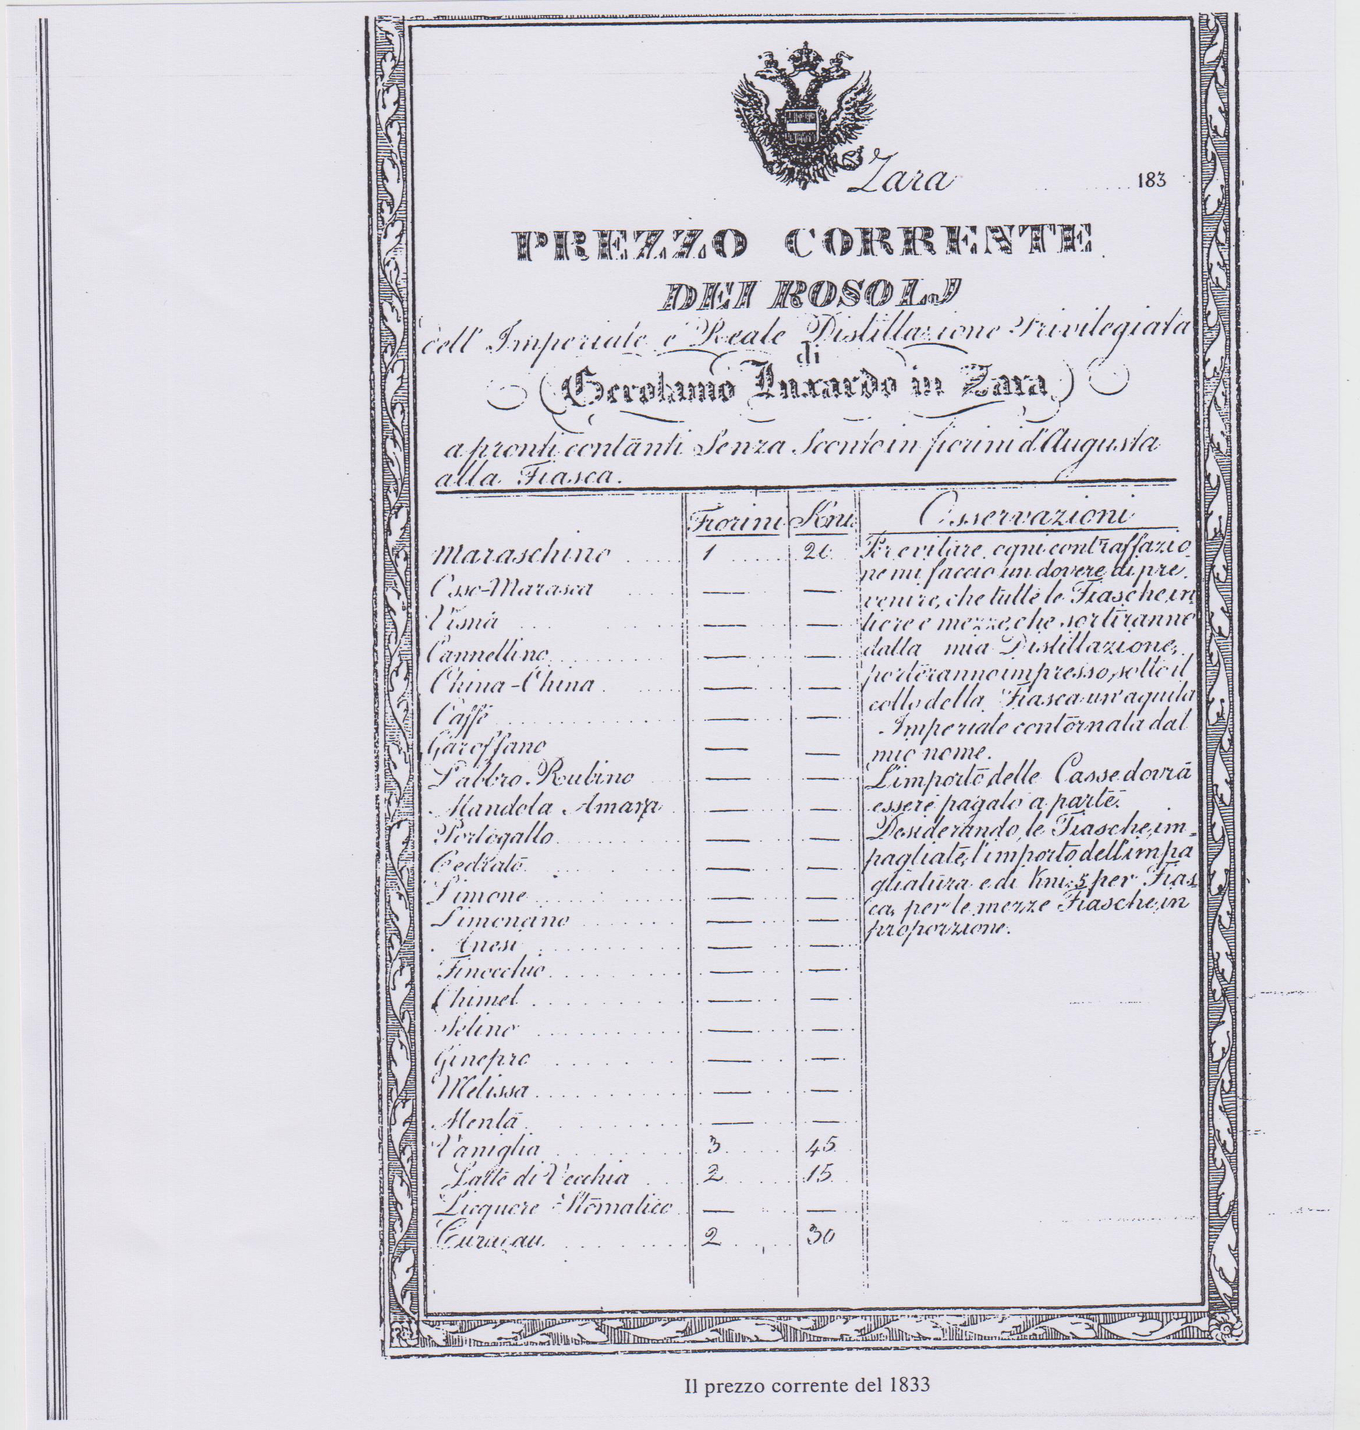 Zara 183
PREZZO CORRENTE
DEI ROSOLJ
dell' Imperiale e Reale Distillazione Privilegiata
di
Gerolamo Luxardo in Zara
a pronti contanti Senza Sconto in fiorini d'Augusta
alla Fiasca.
Fiorini Kni. Osservazioni
Maraschino 1
Osso-Marasca — —
Visna — —
Cannellino — —
China-China — —
Caffè — —
Garoffano — —
Labbro Rubino — —
Mandola Amara — —
Portogallo — —
Cedrato — —
Limone — —
Limonano — —
Anesi — —
Finocchio — —
Chimel — —
Selino — —
Ginepro — —
Melissa — —
Menta — —
Vaniglia 3 45
Latte di Vecchia 2 15
Licquore Stomatico — —
Curaçau 2 30
Per evitare ogni contraffazio
ne mi faccio un dovere di pre
venire, che tutte le Fiasche, in
tiere e mezze, che sortiranno
dalla mia Distillazione,
porteranno impresso, sotto il
collo della Fiasca un'aquila
Imperiale contornata dal
mio nome.
L'importo delle Casse dovrà
essere pagato a parte.
Desiderando, le Fiasche, im-
pagliate, l'importo dell'impa
gliatura e di Kni: 5 per Fias
ca, per le mezze Fiasche, in
proporzione.
Il prezzo corrente del 1833